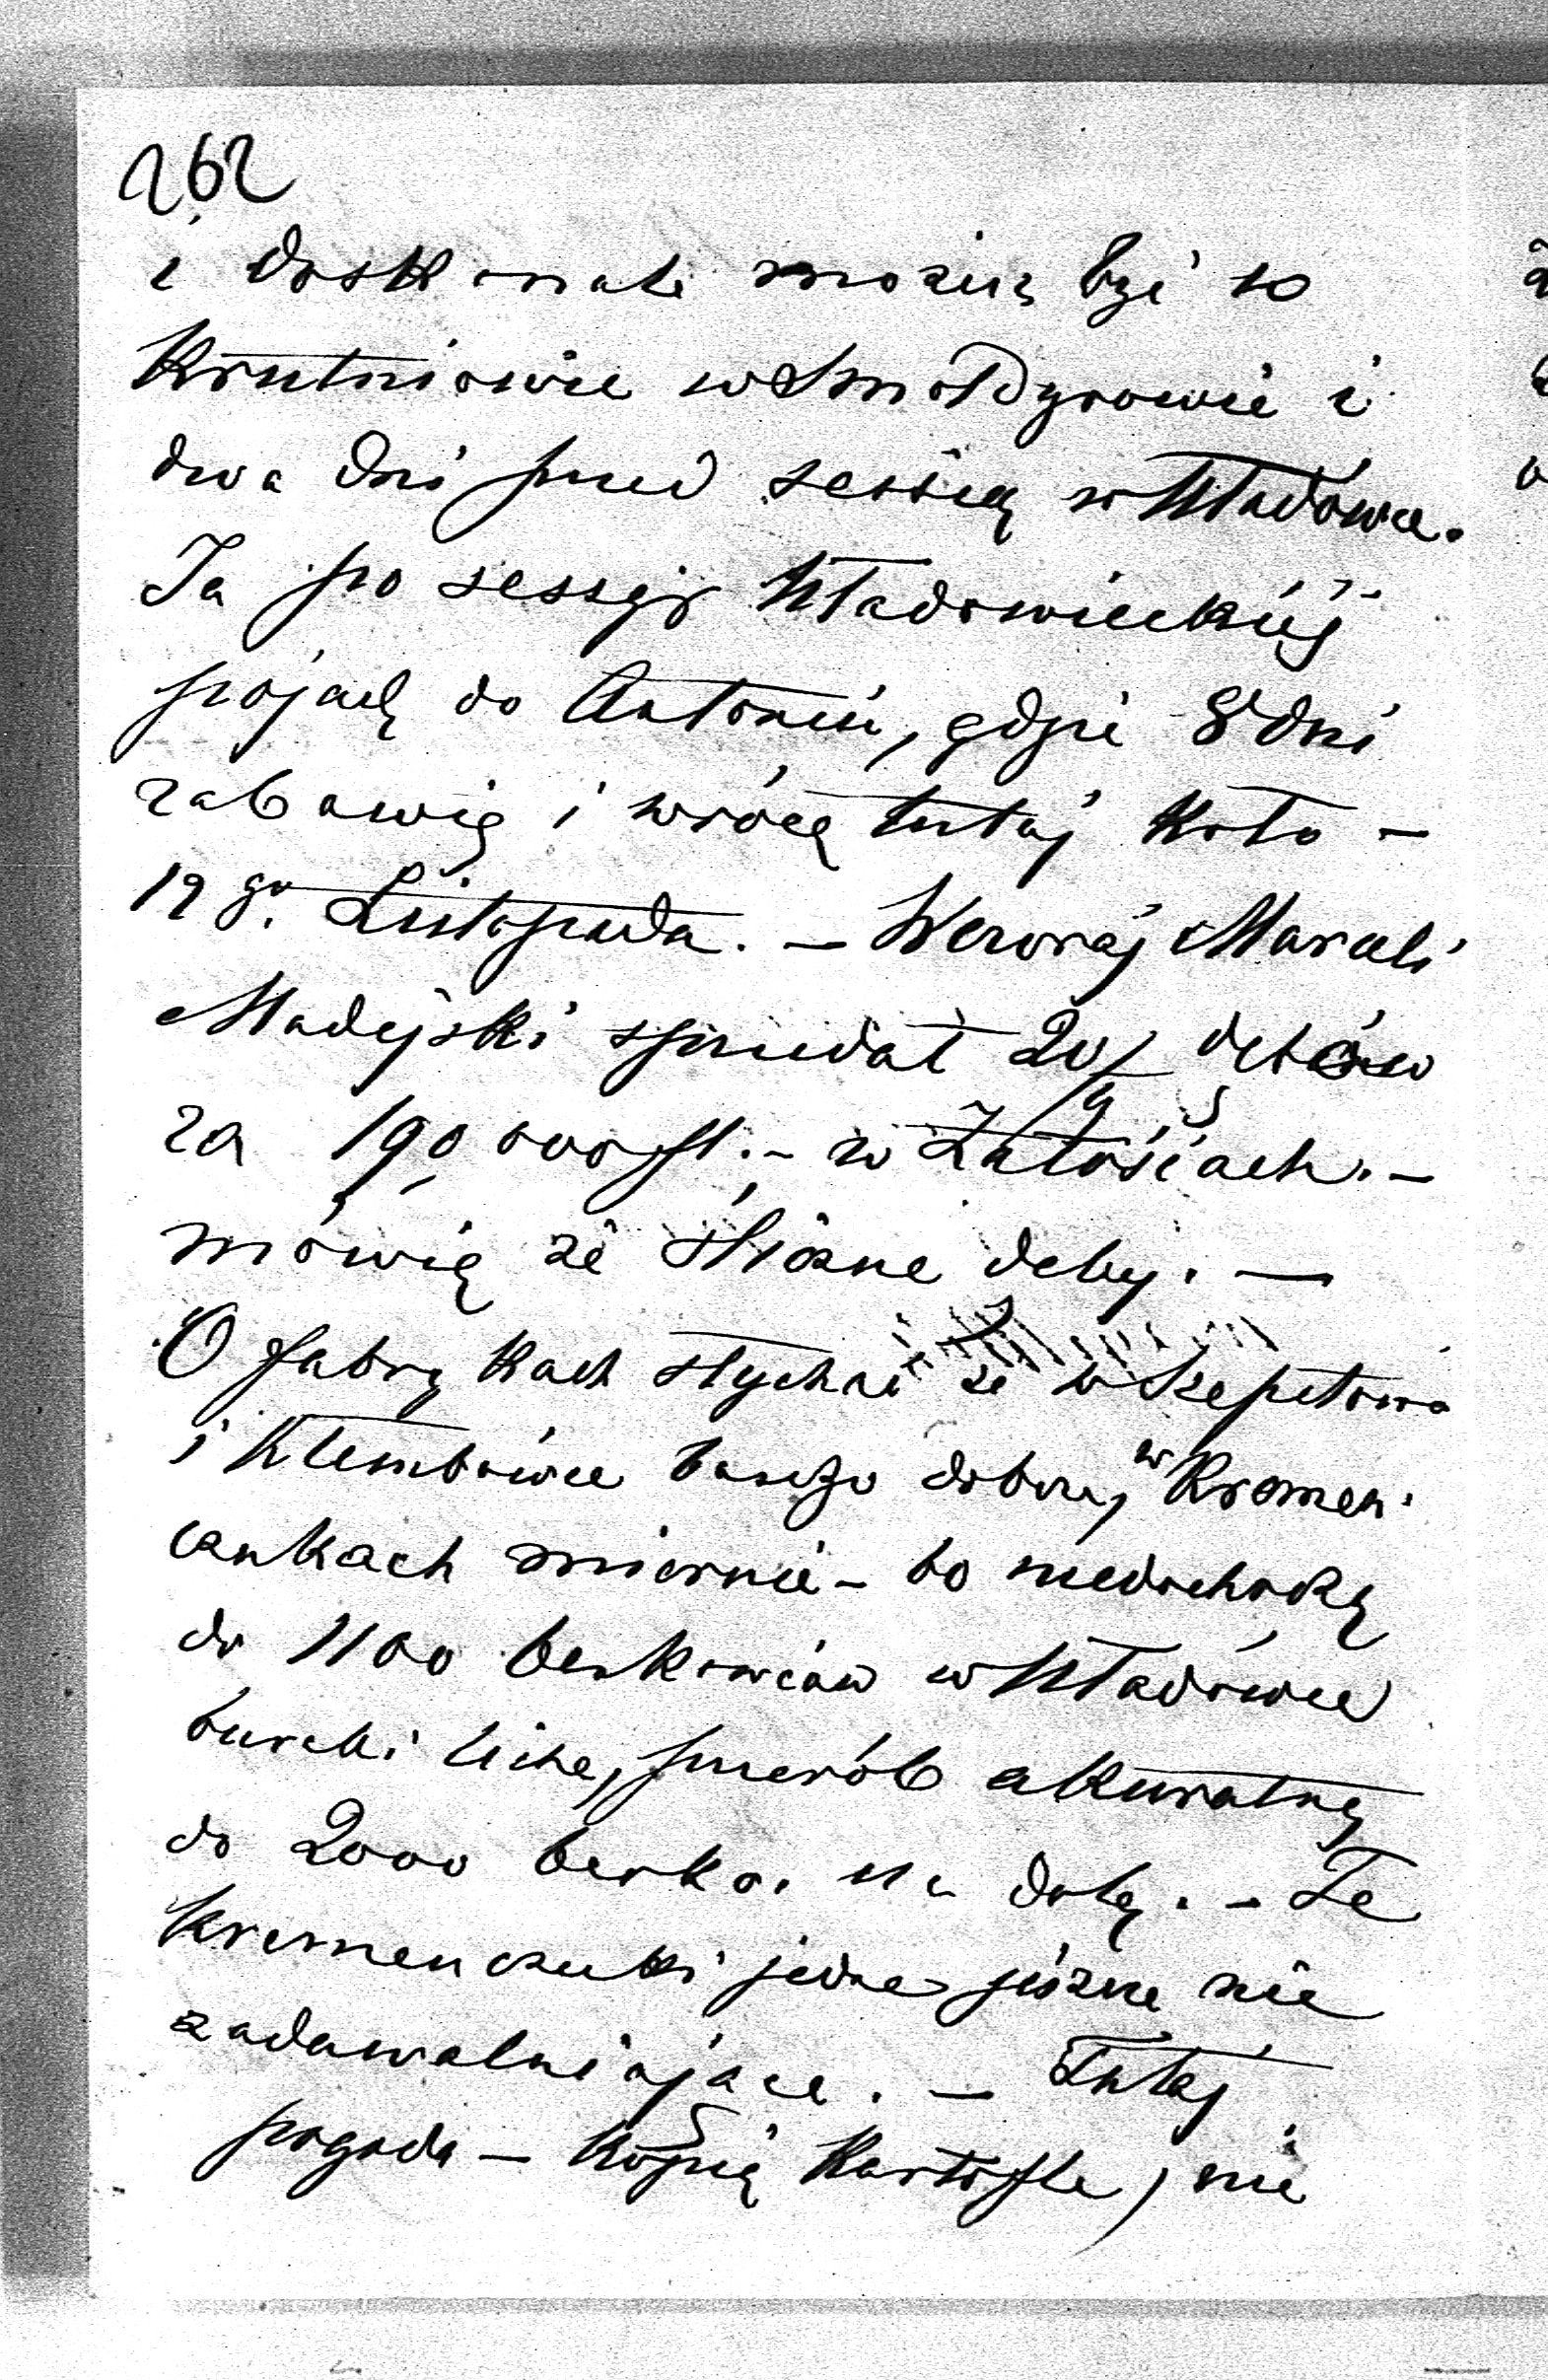 262
i doskonale możesz być w
Krutniowie w Smołdyrowie i
dwa dni przed sessią w Kładówce.
Ja po sessyi Kładowieckiéj
pojadę do Antonin, gdzie 8 dni
zabawię i wrócę tutaj koło –
19 go. Listopada. – Wczoraj Marceli
Madejski sprzedał 20/ dębów
za 190,000 fl. – w Załoścach. –
mówią że śliczne dęby. —
O fabrykach słychać że w Szepetowce
i Klembówce bardzo dobrze, w Kremen
czukach miernie – bo niedochodzą
do 1100 berkowców w Kładówce
buraki liche, przerób akuratny
do 2000 berko. na dobę. – Te
Kremenczuki jedne jeszcze nie
zadawalniające. – Tutaj
pogoda – kopią kartofle, nie